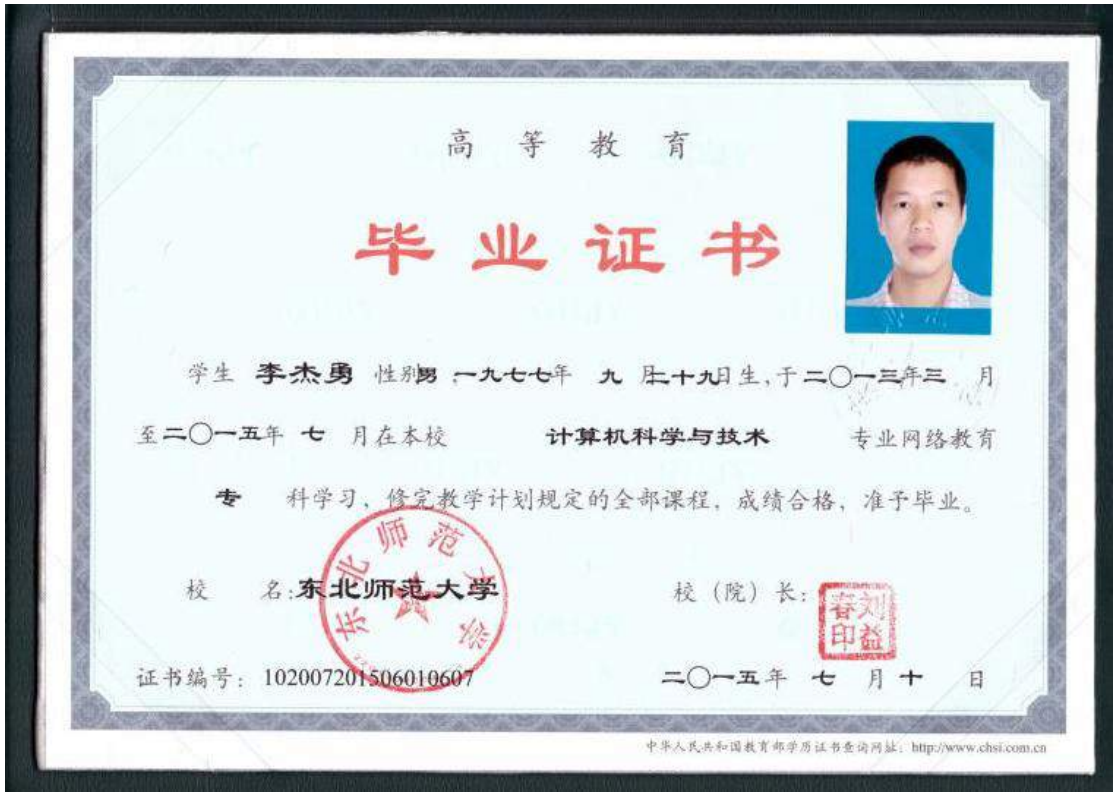 高等教育
毕业证书
学生 李杰勇 性别男，一九七七年 九 月二十九日生，于二〇一三年三 月
至二〇一五年 七 月在本校 计算机科学与技术 专业网络教育
专 科学习，修完教学计划规定的全部课程，成绩合格，准予毕业。
校 名：东北师范大学 校（院）长：
东北师范大学
刘益春印
证书编号：102007201506010607 二〇一五年 七 月十 日
中华人民共和国教育部学历证书查询网址：http://www.chsi.com.cn